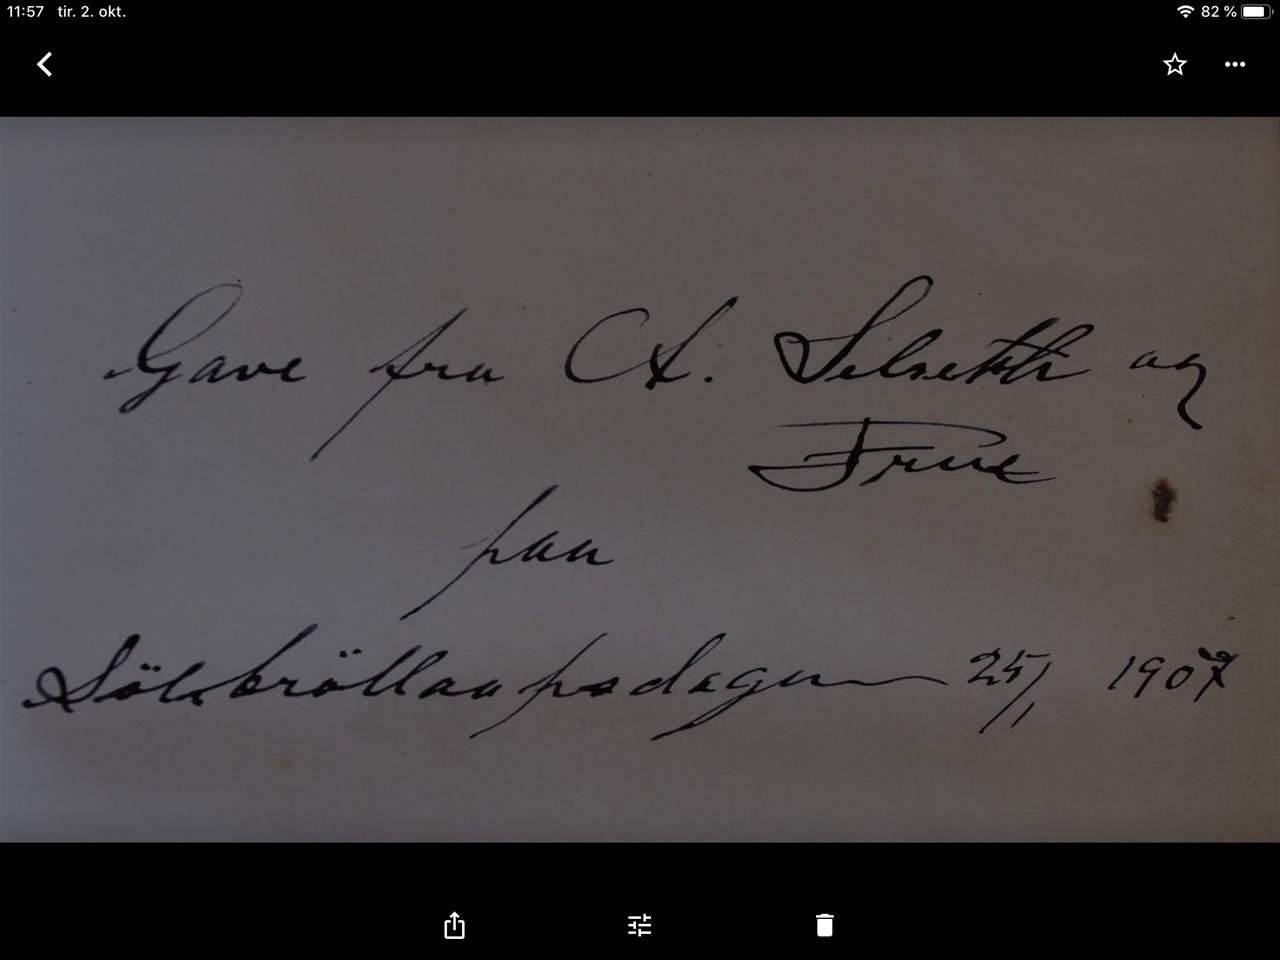 11:57 tir. 2. okt. 82 %
Gave fra A. Selseth og
Frue
paa
Sölvbröllaupsdagen 25/1 1907